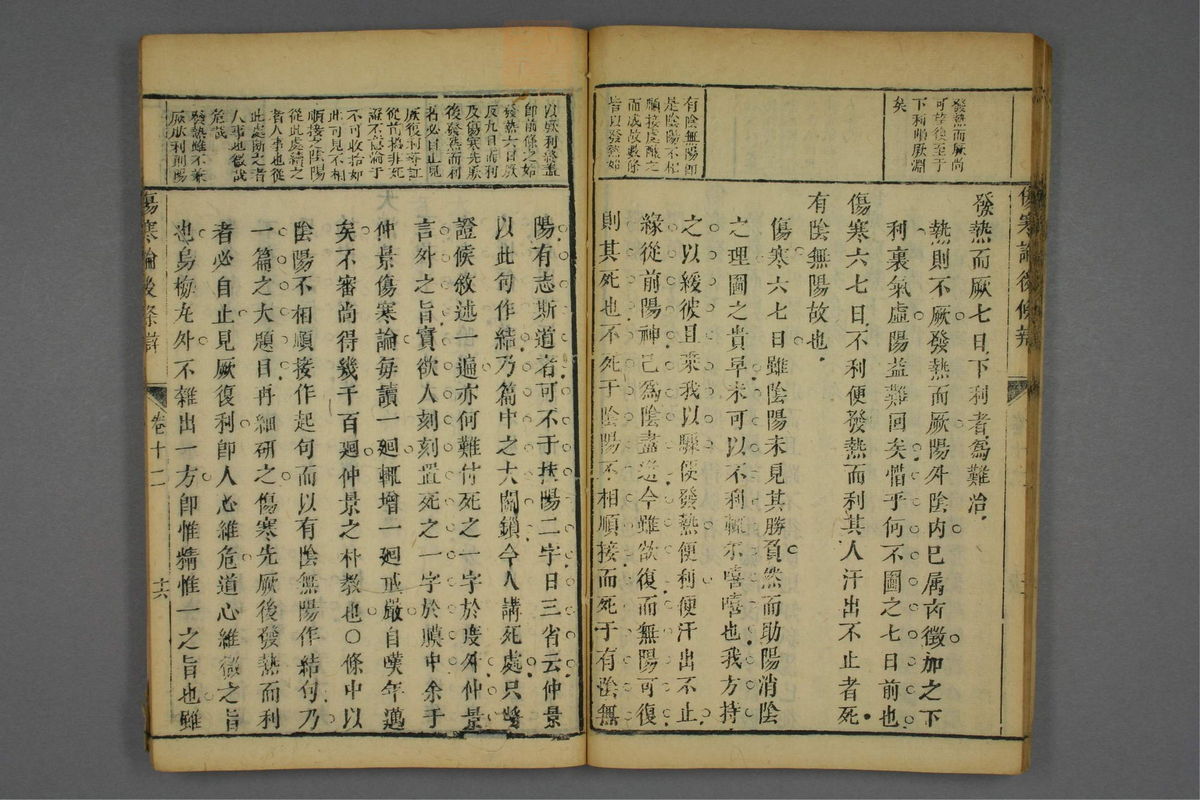 發熱而厥尚
可望後至于
下利則厥淵
矣
有陰無陽即
是陰陽不相
順接處醸之
而成故數條
皆以發熱始
傷寒論後條辨
發熱而厥七日下利者爲難治
熱則不厥發熱而厥陽外陰内已屬否徵加之下
利裏氣虛陽益難回矣惜乎何不圖之七日前也
傷寒六七日不利便發熱而利其人汗出不止者死
有陰無陽故也
傷寒六七日雖陰陽未見其勝負然而助陽消陰
之理圖之貴早未可以不利輒示嘻嘻也我方持
之以緩彼且乘我以驟便發熱便利便汗出不止
緣從前陽神已爲陰盡迨今雖欲復而無陽可復
則其死也不死于陰陽不相順接而死于有陰無
以厥利發熱
即前條之始
發熱六日厥
反九日而利
及傷寒先厥
後發熱而利
者必自止見
厥復利等証
從可揭非死
證不復淪于
不可收拾如
此可見不相
順接之陰陽
從此處續之
者人事也從
此處斷之者
人事也微哉
危哉
發熱雖不兼
厥
陽有志斯道者可不于扶陽二字日三省云仲景
以此句作結乃篇中之大關鎖今人講死處只將
證候敘述一遍亦何難付死之一字於度外仲景
言外之旨實欲人刻刻置死之一字於膜中余于
仲景傷寒論每讀一廻輒增一廻戒嚴自嘆年邁
矣不審尚得幾千百廻仲景之朴教也〇條中以
陰陽不相順接作起句而以有陰無陽作結句乃
一篇之大題目再細研之傷寒先厥後發熱而利
者必自止見厥復利即人心維危道心維微之旨
也烏梅丸外不雜出一方即惟精惟一之旨也雖
傷寒論後條辨
卷十二
十六